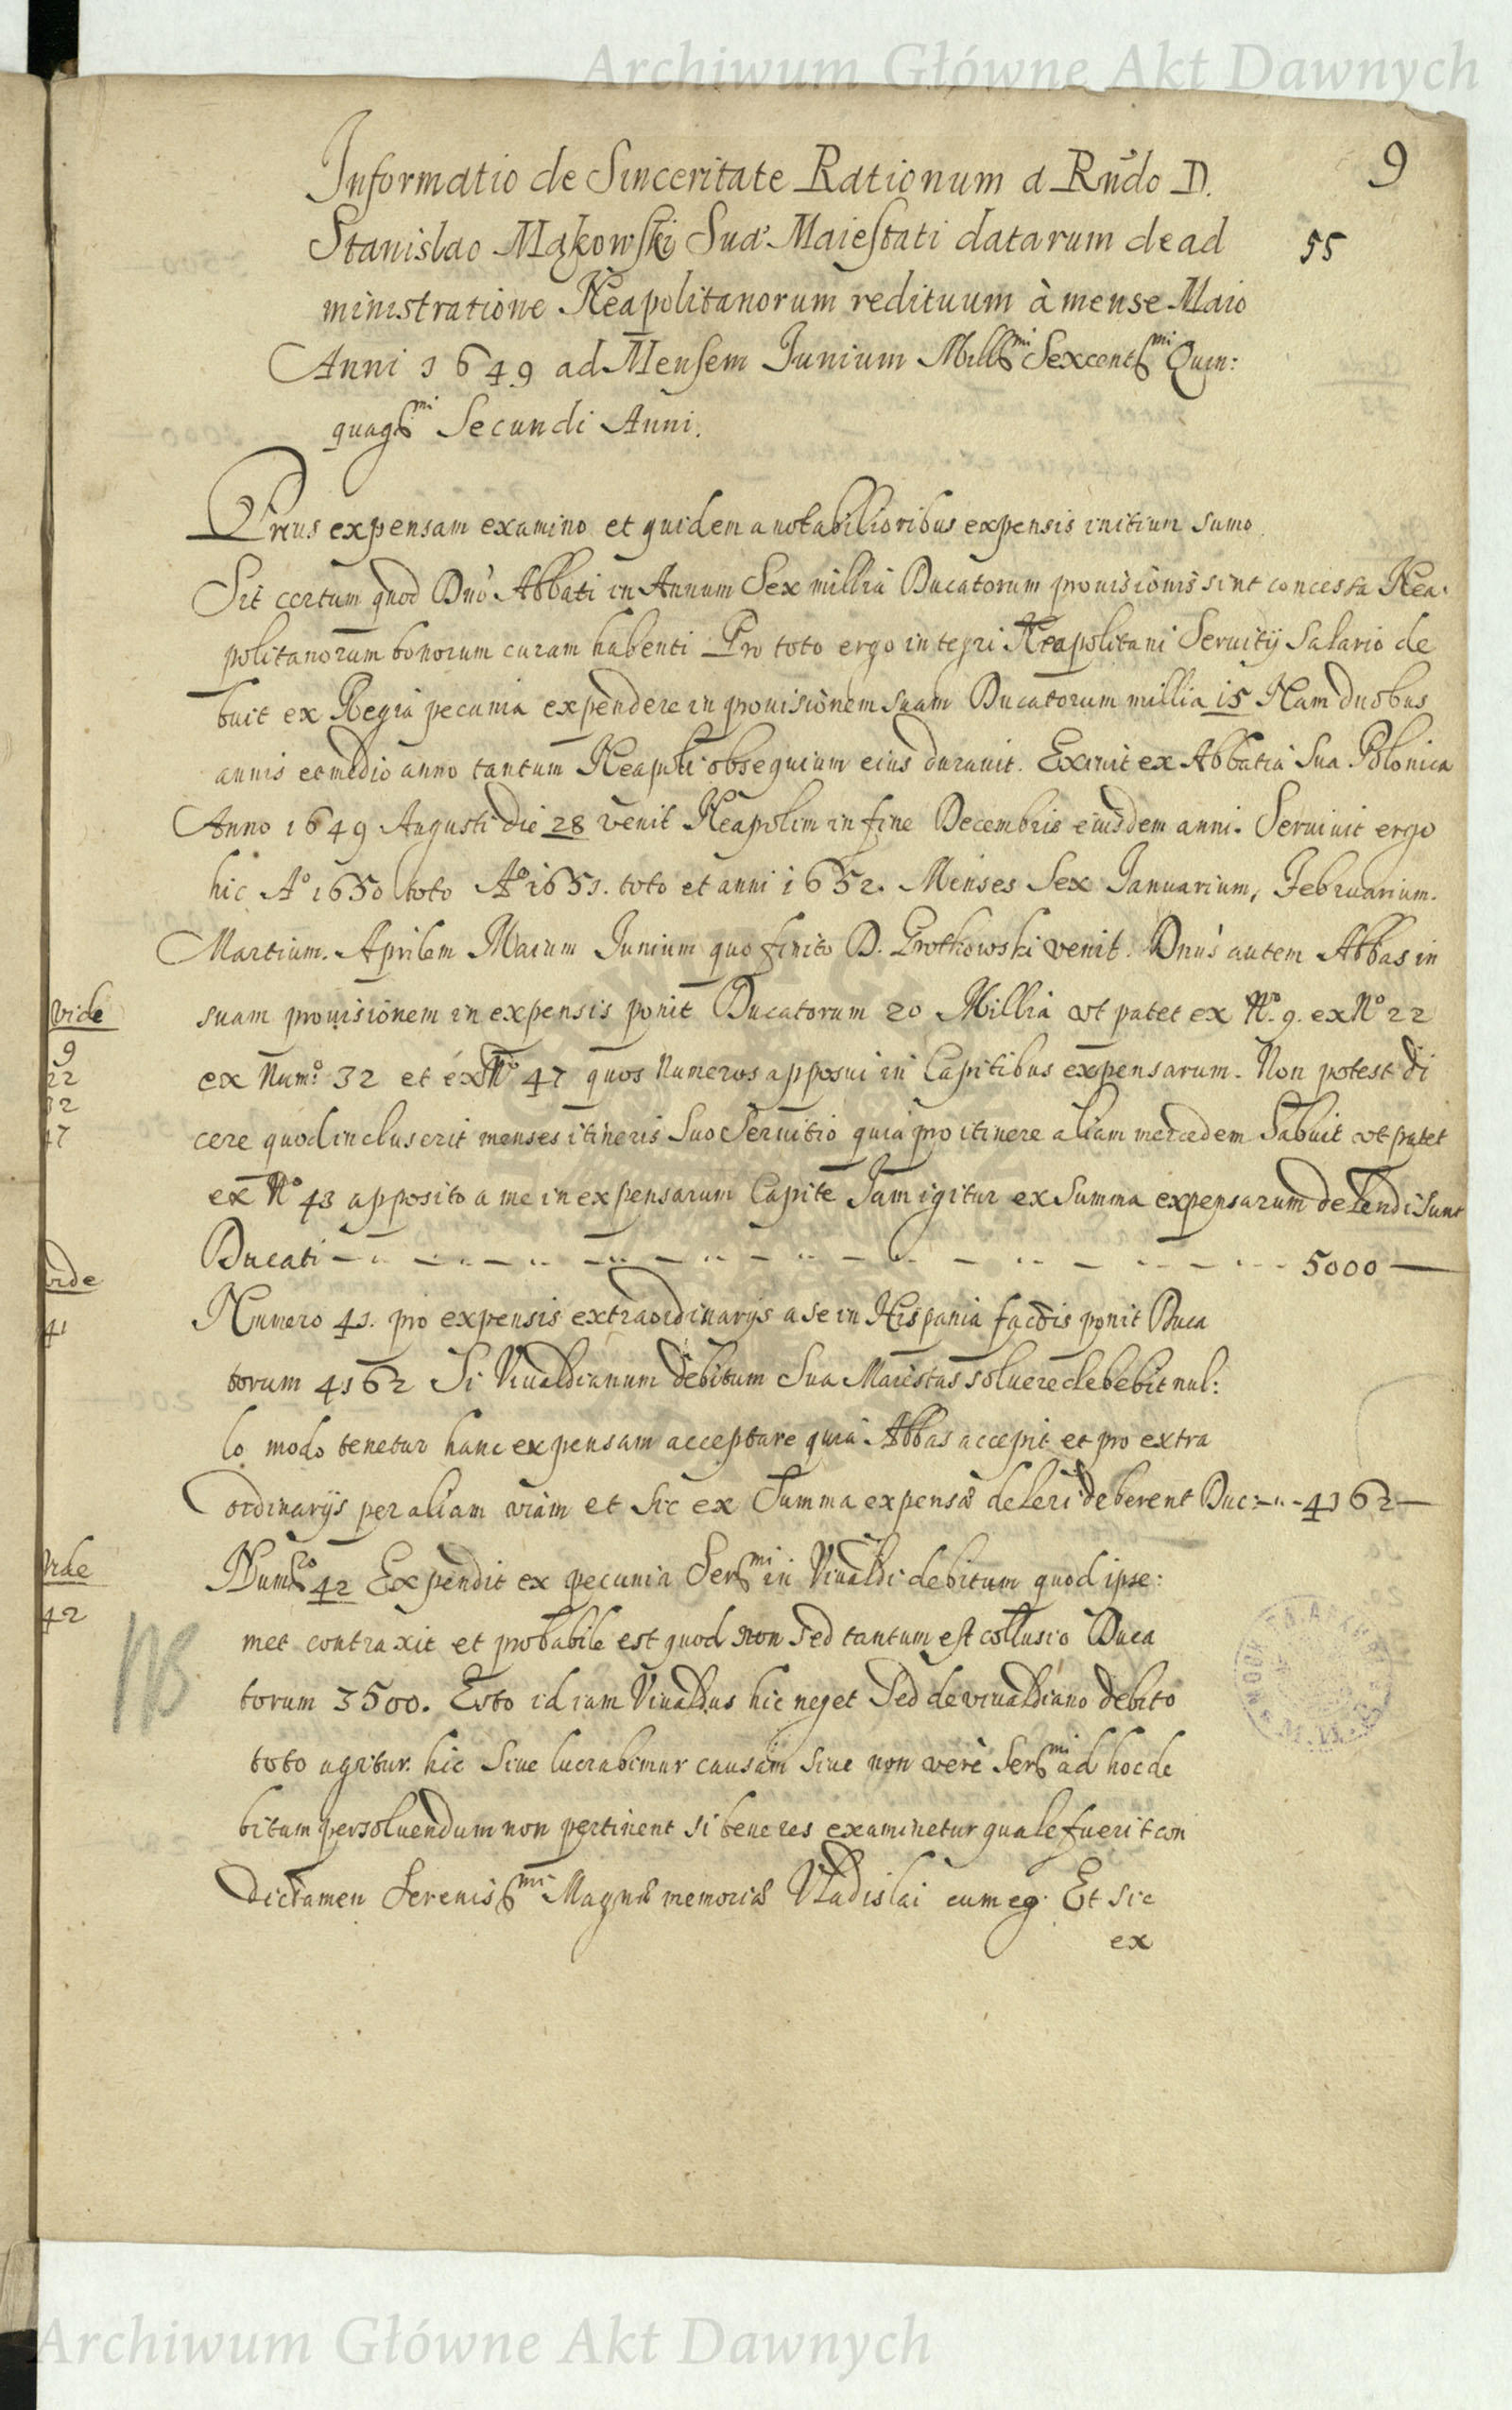 Archiwum Główne Akt Dawnych
9
Informatio de Sinceritate Rationum a Rndo D.
Stanislao Mąkowski Suæ Maiestati datarum de ad
55
ministratione Neapolitanorum redituum à mense Maio
Anni 1649 ad Mensem Junium Mills̄mi Sexcents̄mi Quin:
quagsmi Secundi Anni.
Prius expensam examino et quidem a notabilioribus expensis initium sumo
Sit certum quod Dno Abbati in Annum Sex millia Ducatorum prouisionis sint concessa Nea:
politanorum bonorum curam habenti Pro toto ergo integri Neapolitani Seruitij Salario de
buit ex Regia pecunia expendere in prouisionem suam Ducatorum millia 15 Nam duobus
annis et medio anno tantum Neapoli obsequium eius durauit. Exiuit ex Abbatia Sua Polonica
Anno 1649 Augusti die 28 venit Neapolim in fine Decembris eiusdem anni. Seruiuit ergo
hic Ao 1650 toto Ao 1651. toto et anni 1652. Menses Sex Januarium, Februarium.
Martium. Aprilem Maium Junium quo finito D. Grothowski venit. Dnus autem Abbas in
vide
suam prouisionem in expensis ponit Ducatorum 20 Millia vt patet ex No. 9. ex No 22
9
22
ex Numo: 32 et ex No 47 quos Numeros apposui in Capitibus expensarum. Non potest di
32
47
cere quod incluserit menses itineris Suo Seruitio quia pro itinere aliam mercedem habuit vt patet
ex No 43 apposito a me in expensarum Capite Jam igitur ex Summa expensarum delendi sunt
Ducati - - - - - - - - - - 5000 —
vide
41
Numero 41. pro expensis extraordinarijs a se in Hispania factis ponit Duca
torum 4162 Si Viualdianum debitum Sua Maiestas soluere debebit nul:
lo modo tenetur hanc expensam acceptare quia Abbas accepit et pro extra
ordinarijs per aliam viam et sic ex Summa expensæ deleri deberent Duc: - - 4162 —
vide
42
Numro 42 Expendit ex pecunia Sersmi in Viualdi debitum quod ipse:
NB
met contraxit et probabile est quod non Sed tantum est collusio Duca
torum 3500. Esto id iam Viualdus hic neget Sed de viualdiano debito
toto agitur. hic Siue lucrabimur causam siue non verè Sersmi ad hoc de
bitum persoluendum non pertinent si bene res examinetur quale fuerit con
dictamen Serenissmi Magnæ memoriæ Vladislai cum eo. Et sic
ex
Archiwum Główne Akt Dawnych